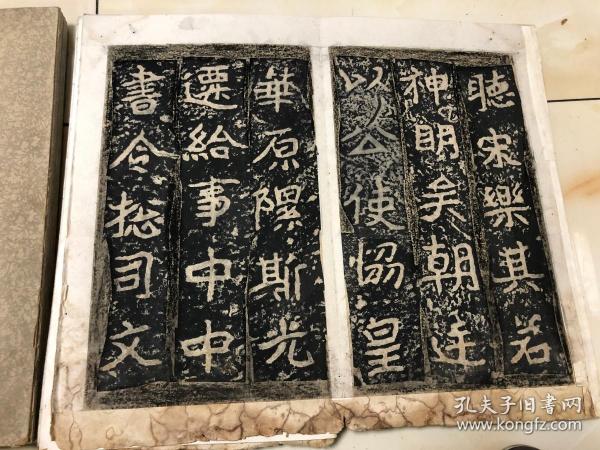 聽宋樂其若
神明矣朝廷
以公使恊皇
華原隰斯光
遷給事中中
書令揔司文
孔夫子旧书网
www.kongfz.com